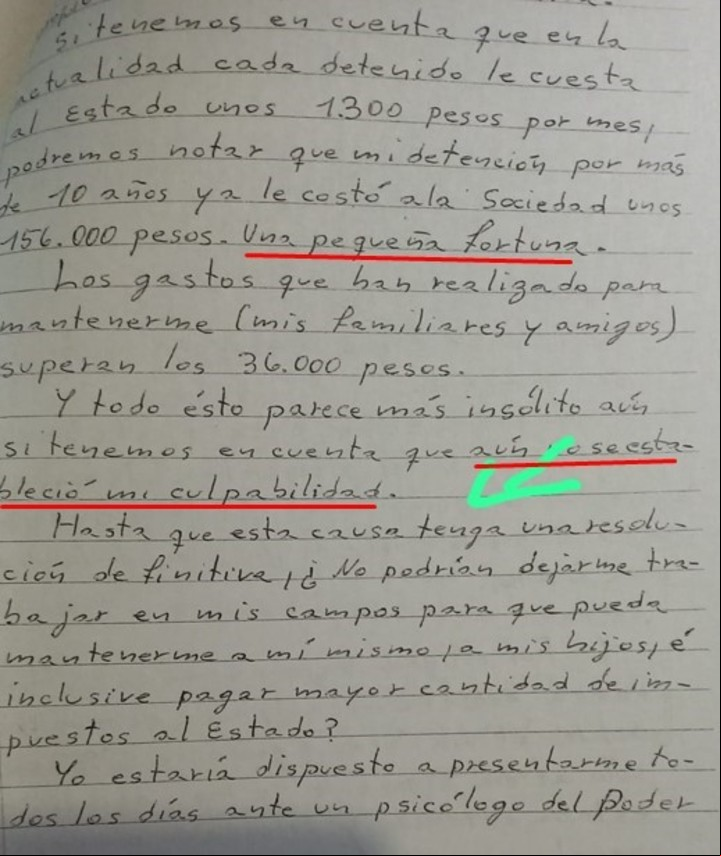 si tenemos en cuenta que en la
actualidad cada detenido le cuesta
al Estado unos 1.300 pesos por mes,
podremos notar que mi detención por más
de 10 años ya le costó a la Sociedad unos
156.000 pesos. Una pequeña fortuna.
Los gastos que han realizado para
mantenerme (mis familiares y amigos)
superan los 36.000 pesos.
Y todo ésto parece más insólito aún
si tenemos en cuenta que aún no se esta-
bleció mi culpabilidad.
Hasta que esta causa tenga una resolu-
ción definitiva, ¿No podrían dejarme tra-
bajar en mis campos para que pueda
mantenerme a mí mismo, a mis hijos, é
inclusive pagar mayor cantidad de im-
puestos al Estado?
Yo estaría dispuesto a presentarme to-
dos los días ante un psicólogo del Poder